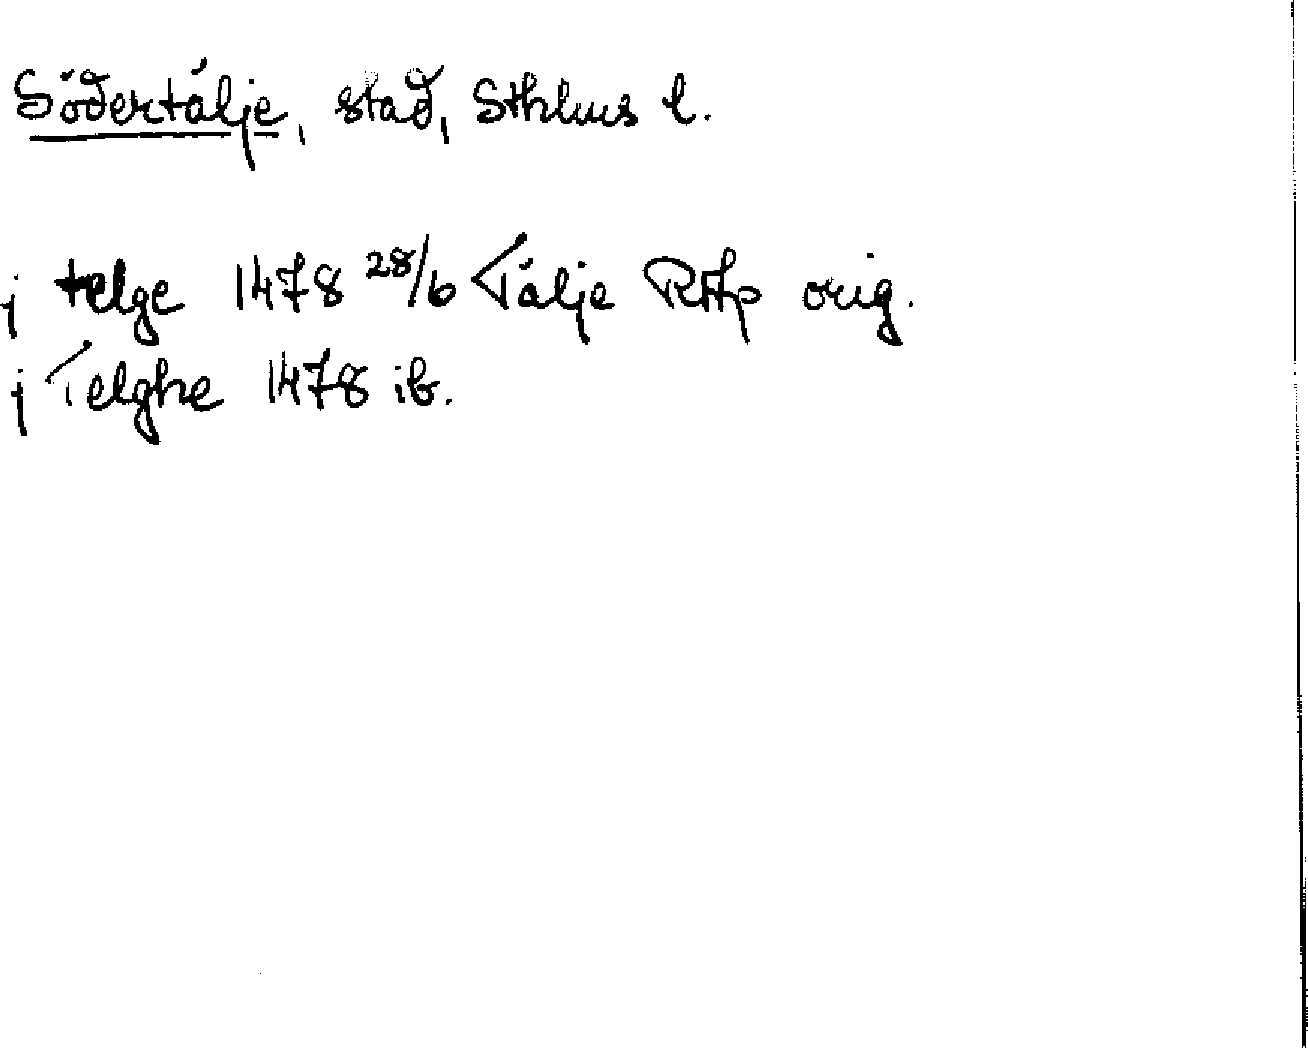 Södertälje, stad, Sthlms l.
j telge 1478 28/6 Tälje RAp orig.
j Telghe 1478 ib.